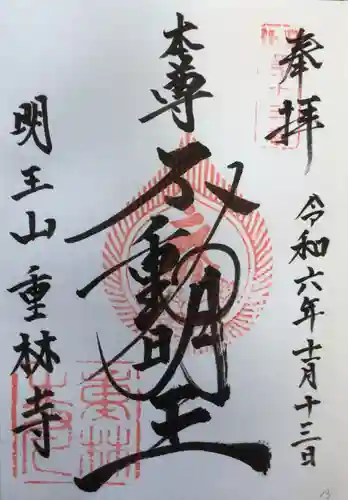 奉拝
令和六年十二月十三日
本尊
不動明王
明王山重林寺